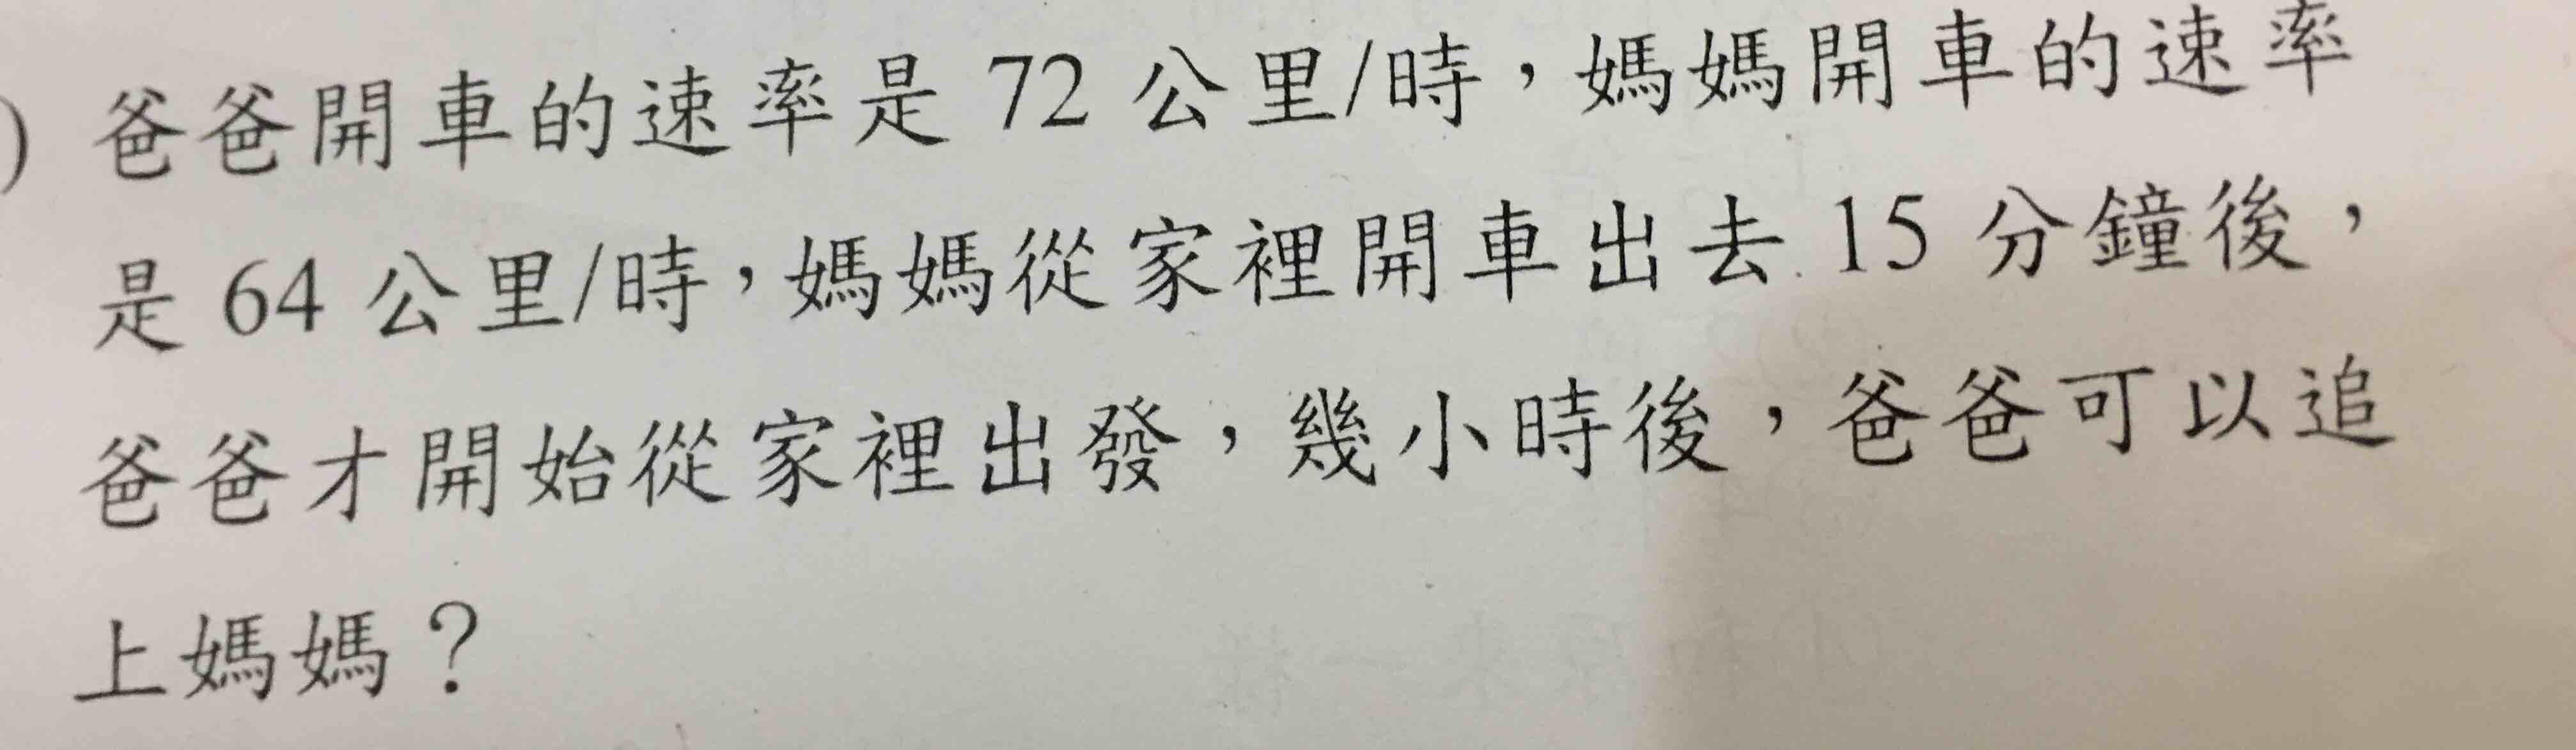 ) 爸爸開車的速率是 72 公里/時，媽媽開車的速率
是 64 公里/時，媽媽從家裡開車出去 15 分鐘後，
爸爸才開始從家裡出發，幾小時後，爸爸可以追
上媽媽？